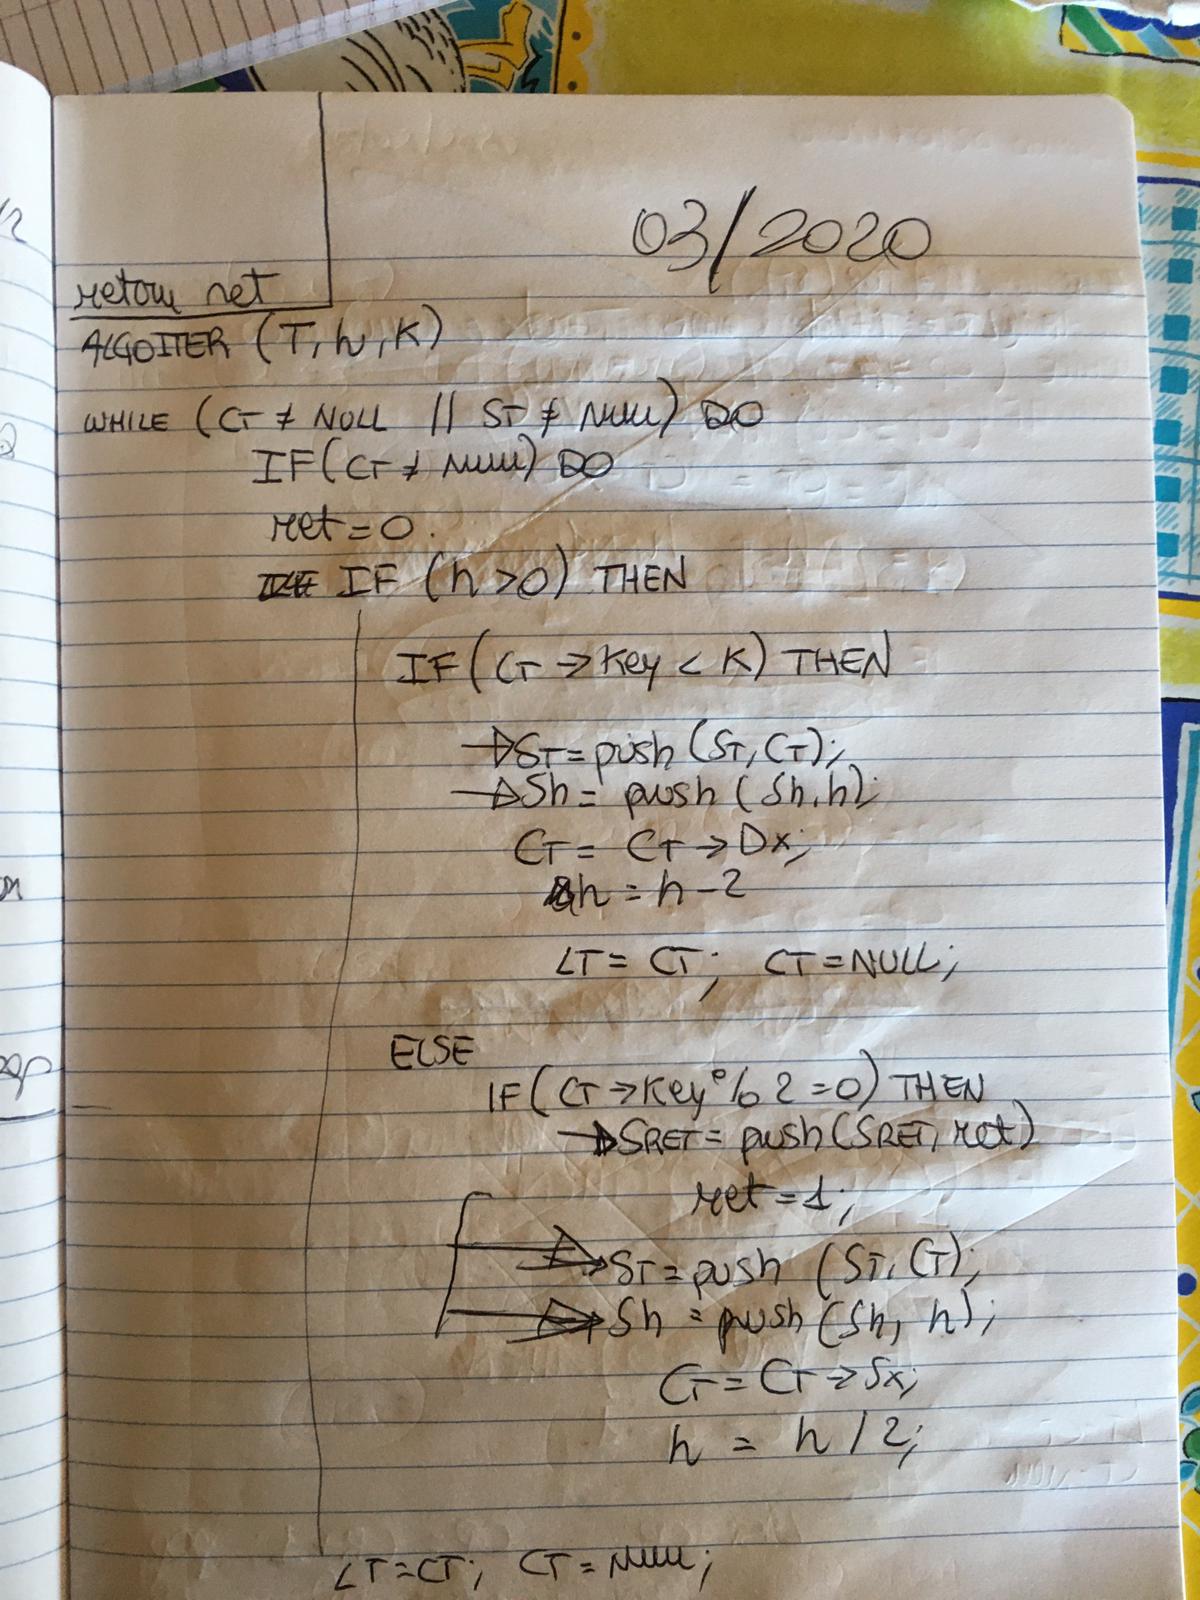 03/2020
return ret
ALGOITER (T, h, K)
WHILE (CT ≠ NULL || ST ≠ NULL) DO
IF (CT ≠ NULL) DO
ret = 0.
IF (h > 0) THEN
IF (CT → Key < K) THEN
→ ST = push (ST, CT);
→ Sh = push (Sh, h);
CT = CT → Dx;
h = h - 2
LT = CT; CT = NULL;
ELSE
IF (CT → Key % 2 = 0) THEN
→ SRET = push (SRET, ret)
ret = 1;
→ ST = push (ST, CT);
→ Sh = push (Sh, h);
CT = CT → Sx;
h = h / 2;
LT = CT; CT = NULL;